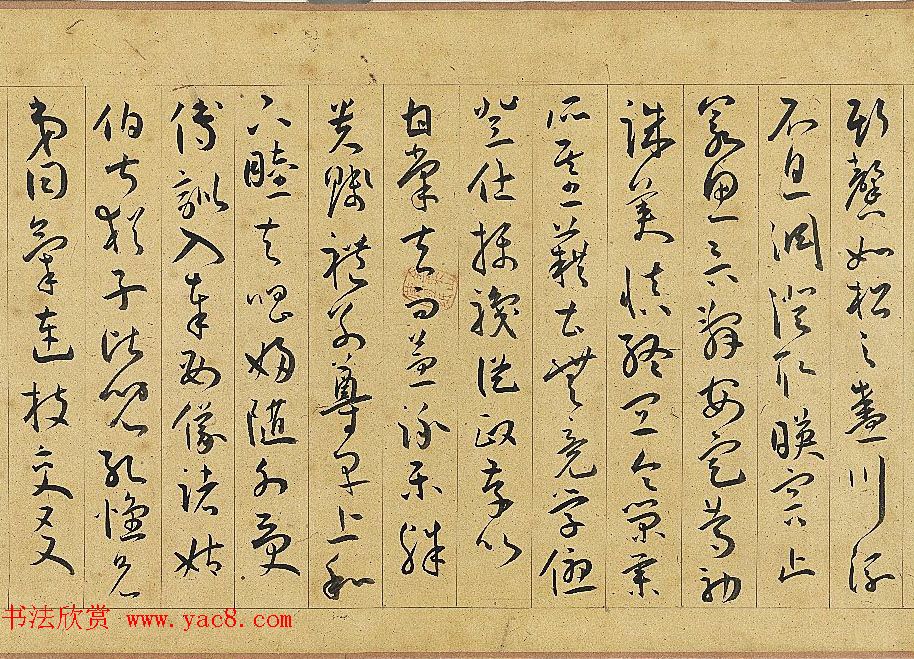 斯馨如松之盛川流
不息淵澄取暎容止
若思言辭安定篤初
誠美慎終宜令榮業
所基藉甚無竟學優
登仕攝職從政存以
甘棠去而益詠樂殊
貴賤禮別尊卑上和
下睦夫唱婦隨外受
傅訓入奉母儀諸姑
伯叔猶子比兒孔懷兄
弟同氣連枝交友
书法欣赏 www.yac8.com